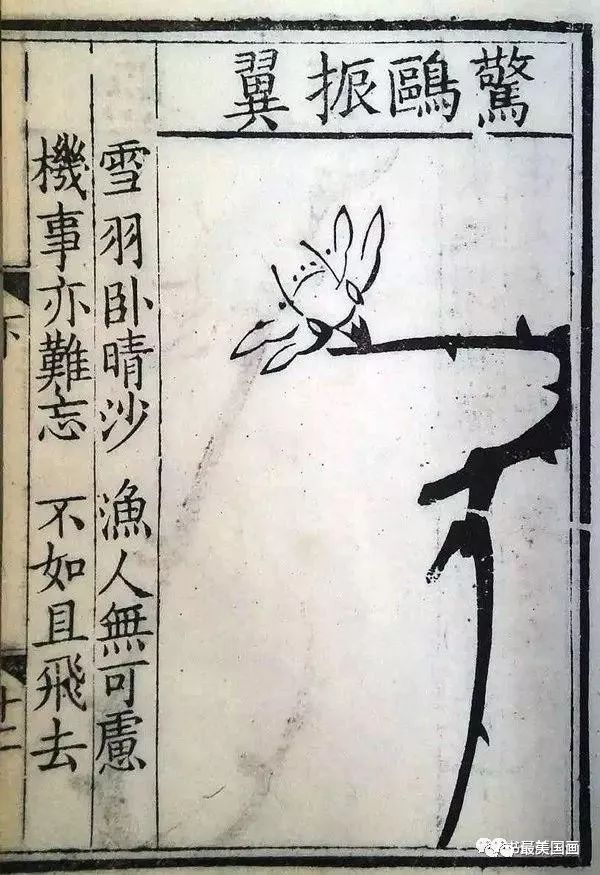 驚鷗振翼
雪羽卧晴沙 漁人無可慮
機事亦難忘 不如且飛去
下
十二
最美国画